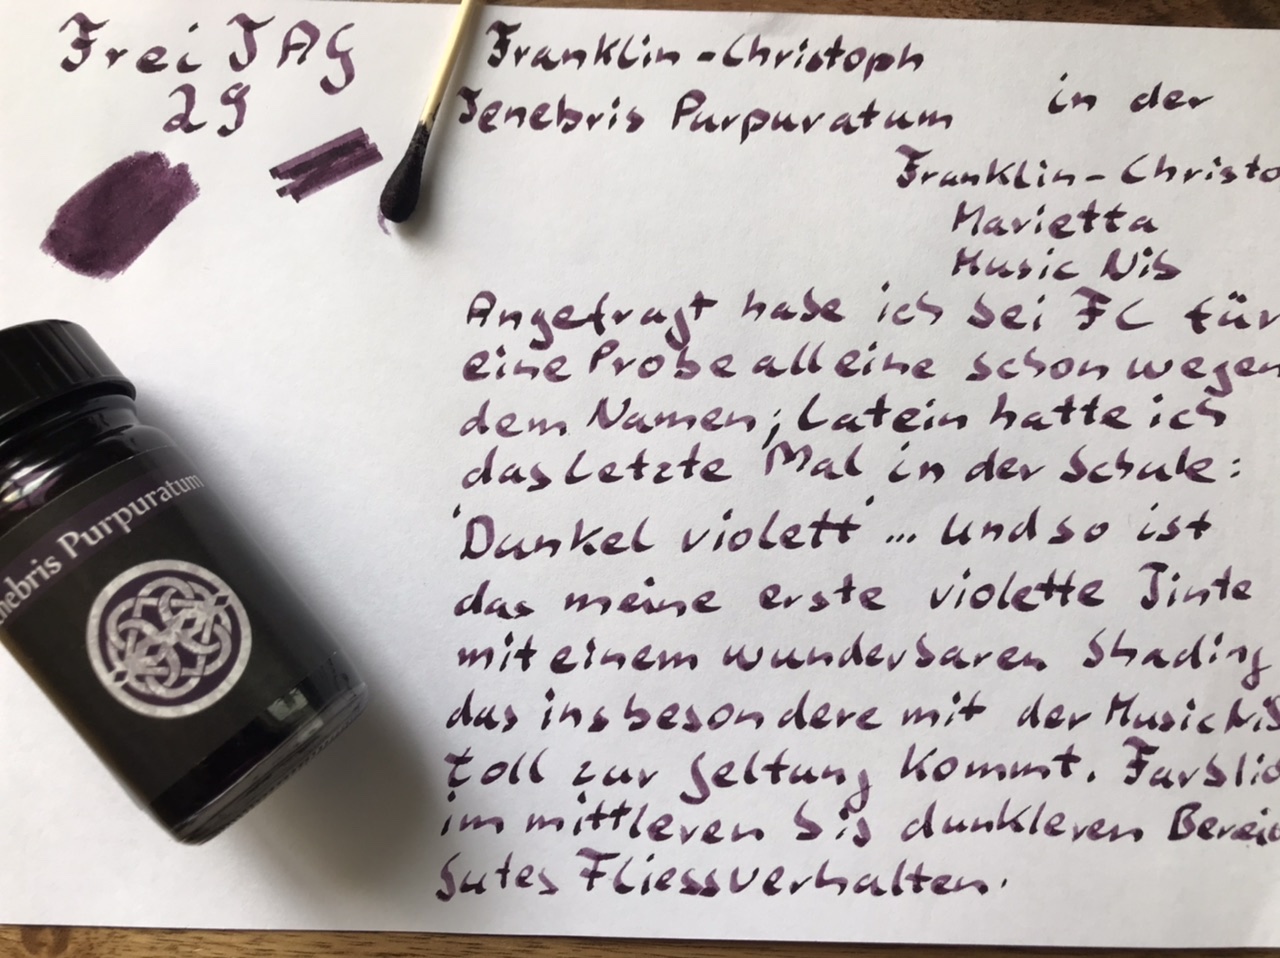 FreiTAG
29
Franklin-Christoph
Tenebris Purpuratum in der
Franklin-Christo
Marietta
Music Nib
Angefragt habe ich bei FC für
eine Probe alleine schon wegen
dem Namen; Latein hatte ich
das letzte Mal in der Schule:
'Dunkel violett' ... und so ist
das meine erste violette Tinte
mit einem wunderbaren Shading
das insbesondere mit der Music Nib
toll zur Geltung kommt. Farblic
im mittleren bis dunkleren Bereic
gutes Fliessverhalten.
nebris Purpuratum